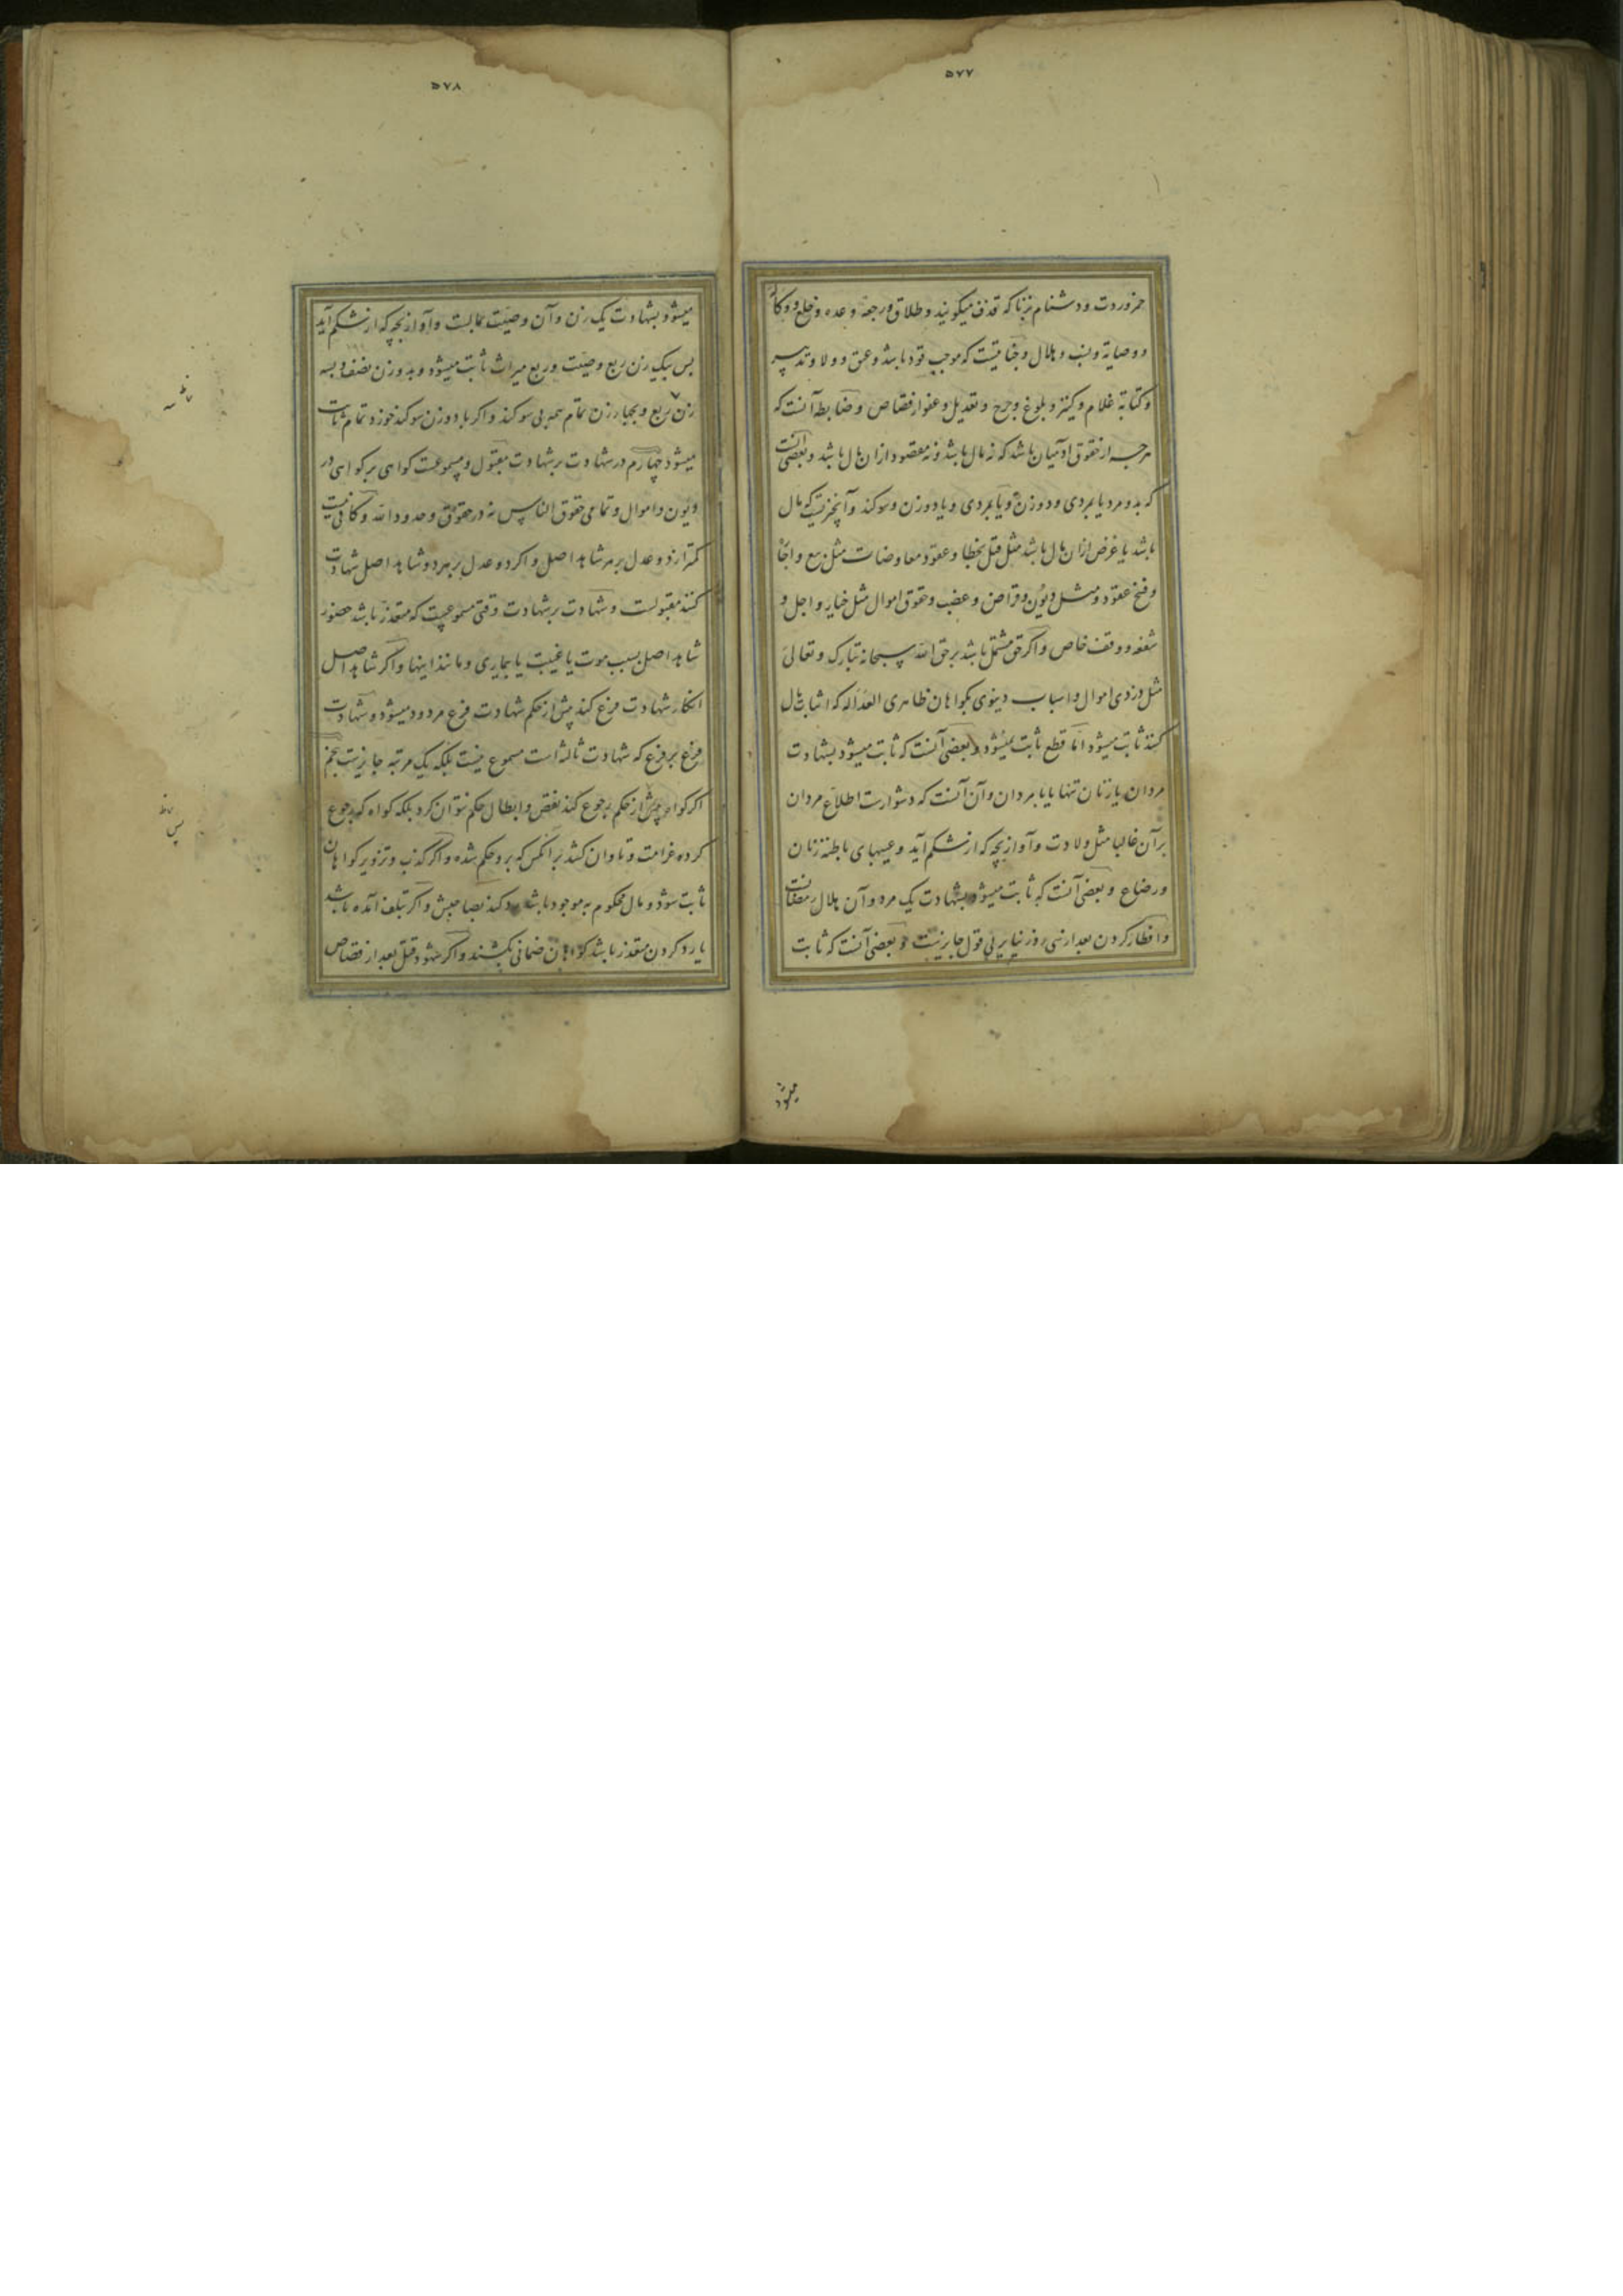 ۵۷۷
خمر وردت ودشنام بزنا که قذف میکویند وطلاق ورجعة وعده وخلع ووکالة
ووصایة ونسب وهلال وجنایتیست که موجب قود باشد وعتق وولا وتدبیر
وکتابة غلام وکنیز وبلوغ وجرح وتعدیل وعفو از قصاص وضابطه آنست که
هرچه از حقوق آدمیان باشد که نه مال باشد ونه مقصود ازان مال باشد وبعضی آنست
که بدو مرد یا بمردی ودو زن ویا بمردی ویا دو زن وسوکند وآن چیزیست که مال
باشد یا غرض ازان مال باشد مثل قتل بخطا وعقود معاوضات مثل بیع واجاره
وفسخ عقود ومثل دیون وقراض وغصب وحقوق اموال مثل خیار واجل و
شفعه ووقف خاص واکر حق مشتمل باشد برحق الله سبحانه تبارک وتعالی
مثل دزدی اموال واسباب دینوی بکواهان ظاهری العداله که اثبات مال
کنند ثابت میشود اما قطع ثابت نمیشود وبعضی آنست که ثابت میشود بشهادت
مردان یا زنان تنها یا با مردان وآن آنست که دشوارست اطلاع مردان
برآن غالبا مثل ولادت وآواز بچه که از شکم آید وعیبهای باطنه زنان
ورضاع وبعضی آنست که ثابت میشود بشهادت یک مرد وآن هلال رمضانست
وافطار کردن بعد از سی روز بنابر این قول جایزنیست وبعضی آنست که ثابت
میشود
۵۷۸
میشود بشهادت یک زن وآن وصیت بمالست وآواز بچه که از شکم آید
پس بیک زن ربع وصیت وربع میراث ثابت میشود وبدو زن نصف وبسه
زن سه ربع وبچهار زن تمام همه بی سوکند واکر با دو زن سوکند خورد تمام ثابت
میشود چهارم در شهادت برشهادت مقبول ومسموعست کواهی برکواهی در
دیون واموال وتمامی حقوق الناس نه در حقوق وحدود الله وکافی نیست
کمتر از دو عدل برهر شاهد اصل واکر دو عدل برهر دو شاهد اصل شهادت
کنند مقبولست وشهادت برشهادت وقتی مسموعیست که متعذر باشد حضور
شاهد اصل بسبب موت یا غیبت یا بیماری ومانند اینها واکر شاهد اصل
انکار شهادت فرع کند پیش از حکم شهادت فرع مردود میشود وشهادت
فرع برفرع که شهادت ثالثه است مسموع نیست بلکه یک مرتبه جایزیست پنجم
اکر کواه پیش از حکم رجوع کند نقض وابطال حکم نتوان کرد بلکه کواه که رجوع
کرده غرامت وتاوان کشد برانکس که بروحکم شده واکر کذب وتزویر کواهان
ثابت شود ومال محکوم به موجود باشد رد کنند بصاحبش واکر تلف آمده باشد
یا رد کردن متعذر باشد کواهان ضمانی بکشند واکر شهود قتل بعد از قصاص